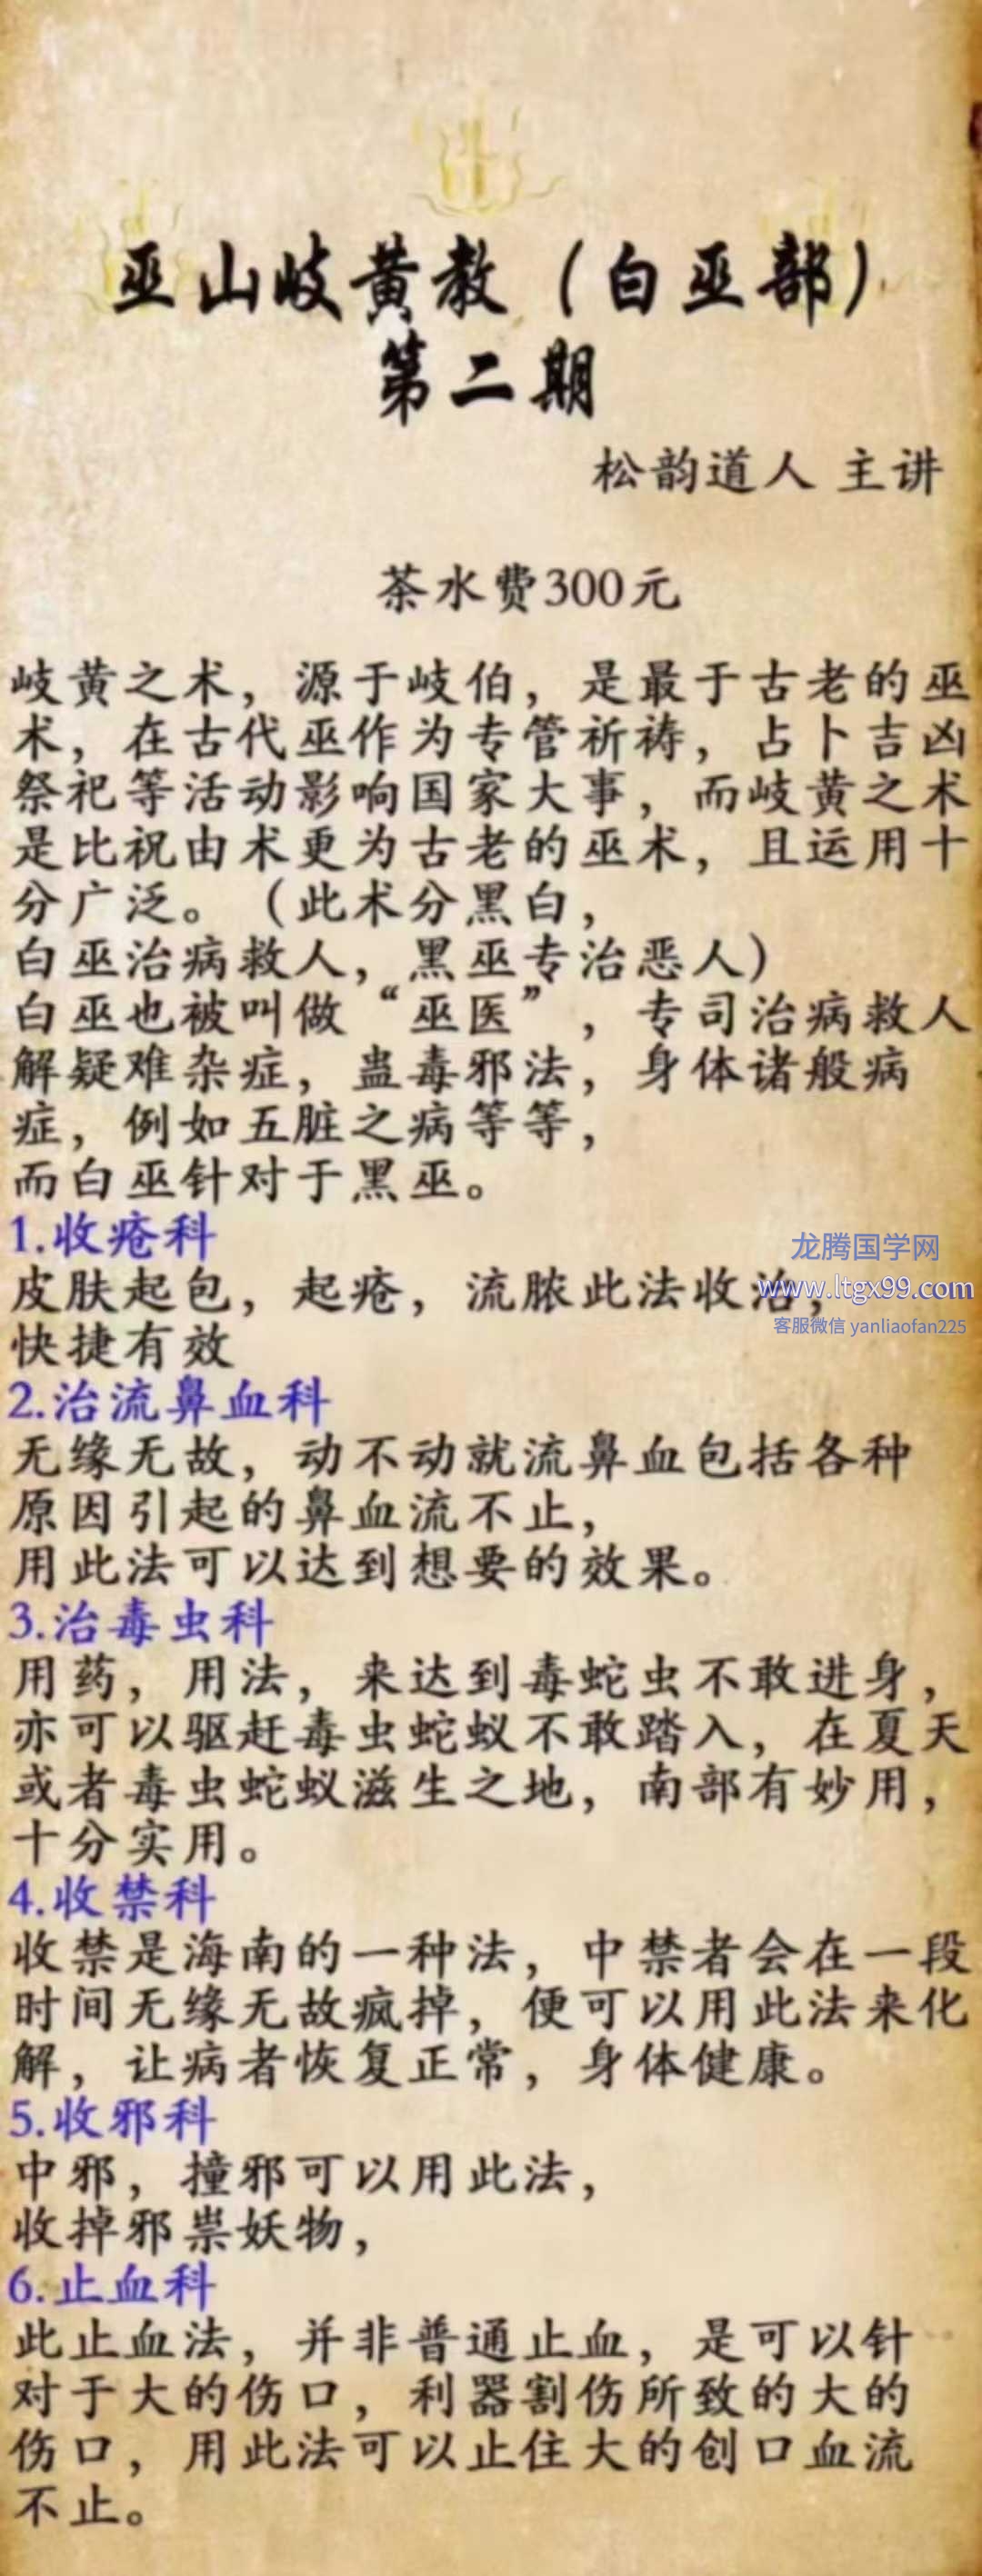 巫山岐黄教（白巫部）
第二期
松韵道人 主讲
茶水费300元
岐黄之术，源于岐伯，是最于古老的巫
术，在古代巫作为专管祈祷，占卜吉凶
祭祀等活动影响国家大事，而岐黄之术
是比祝由术更为古老的巫术，且运用十
分广泛。（此术分黑白，
白巫治病救人，黑巫专治恶人）
白巫也被叫做“巫医”，专司治病救人
解疑难杂症，蛊毒邪法，身体诸般病
症，例如五脏之病等等，
而白巫针对于黑巫。
1.收疮科
皮肤起包，起疮，流脓此法收治，
快捷有效
龙腾国学网
www.ltgx99.com
客服微信 yanliaofan225
2.治流鼻血科
无缘无故，动不动就流鼻血包括各种
原因引起的鼻血流不止，
用此法可以达到想要的效果。
3.治毒虫科
用药，用法，来达到毒蛇虫不敢进身，
亦可以驱赶毒虫蛇蚁不敢踏入，在夏天
或者毒虫蛇蚁滋生之地，南部有妙用，
十分实用。
4.收禁科
收禁是海南的一种法，中禁者会在一段
时间无缘无故疯掉，便可以用此法来化
解，让病者恢复正常，身体健康。
5.收邪科
中邪，撞邪可以用此法，
收掉邪祟妖物，
6.止血科
此止血法，并非普通止血，是可以针
对于大的伤口，利器割伤所致的大的
伤口，用此法可以止住大的创口血流
不止。